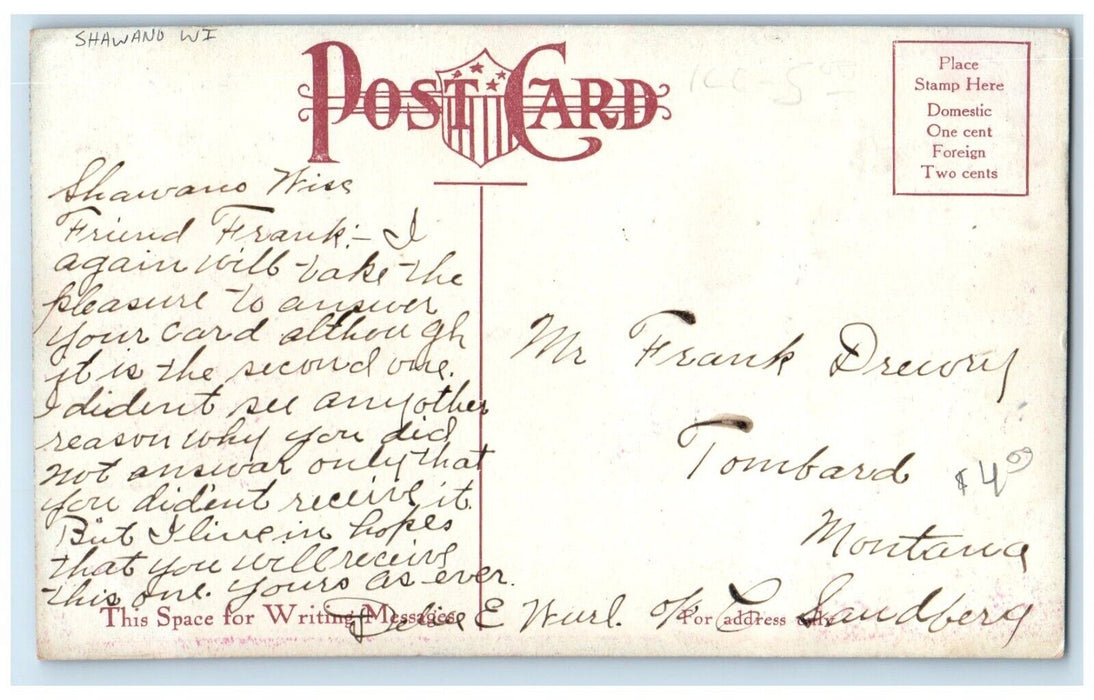 SHAWANO WI
POST CARD
Place
Stamp Here
Domestic
One cent
Foreign
Two cents
Shawano Wisc
Friend Frank:- I
again will take the
pleasure to answer
your card although
it is the second one.
I dident see any other
reason why you did
not answar only that
you dident receive it.
But I live in hopes
that you will receive
this one. Yours as ever.
E Wurl. c/o C Sandberg
This Space for Writing Messages
For address only
Mr Frank Drewry
Tombard
Montana
$4.00